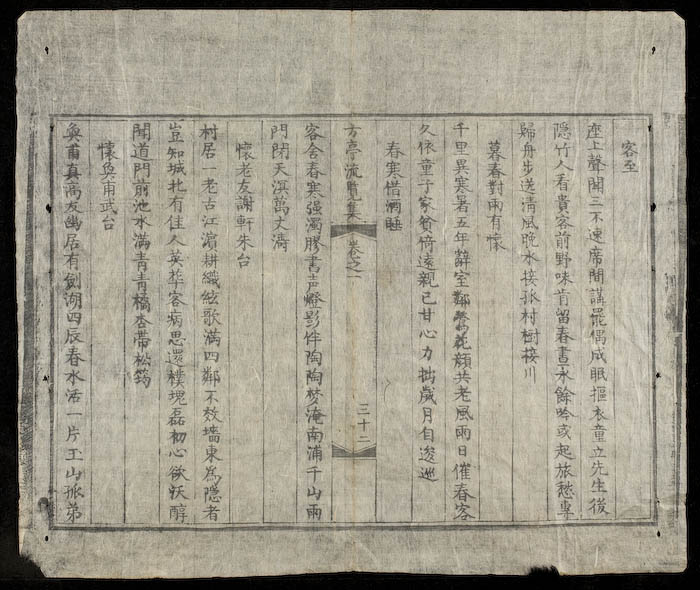 客至
座上聲聞三不速席間講罷偶成眠摳衣童立先生後
隱竹人看貴客前野味肯留春晝永餘吟或起旅愁專
歸舟步送清風晚水接孤村樹接川
暮春對雨有懷
千里異寒暑五年辭室鄰鶯花顏共老風雨日催春客
久依童子家貧倚遠親已甘心力拙歲月自逡巡
春寒借酒睡
方亭流覽集 卷之一 三十二
客舍春寒强濁膠書声燈影伴陶陶梦淹南浦千山雨
門閉天淇萬丈濤
懷老友謝軒朱台
村居一老古江濵耕織絃歌滿四鄰不效墻東為隱者
豈知城北有佳人英華客病思還樸塊磊初心欲沃醇
聞道門前池水滿青青橋杏帶松筠
懷奐甫武台
奐甫真高友幽居有劍湖四辰春水活一片玉山孤弟